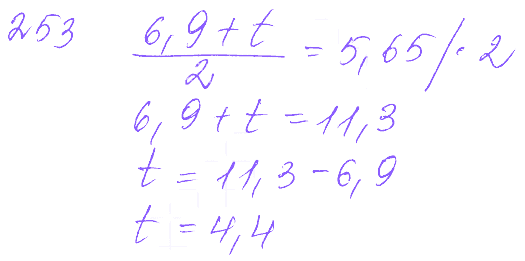 253 (6,9+t)/2 = 5,65 /·2
6,9+t=11,3
t=11,3-6,9
t=4,4